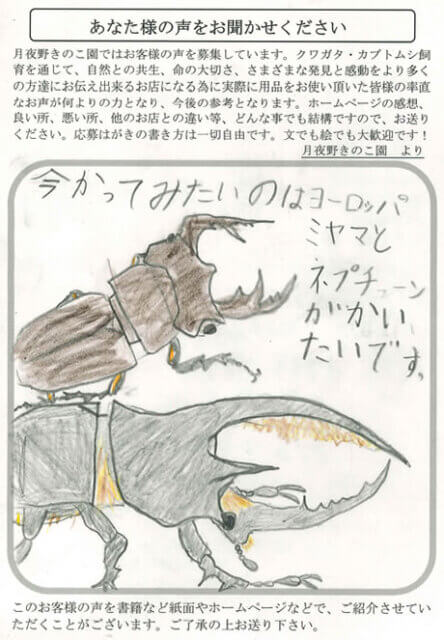 あなた様の声をお聞かせください
月夜野きのこ園ではお客様の声を募集しています。クワガタ・カブトムシ飼
育を通じて、自然との共生、命の大切さ、さまざまな発見と感動をより多く
の方達にお伝え出来るお店になる為に実際に用品をお使い頂いた皆様の率直
なお声が何よりの力となり、今後の参考となります。ホームページの感想、
良い所、悪い所、他のお店との違い等、どんな事でも結構ですので、お送り
ください。応募はがきの書き方は一切自由です。文でも絵でも大歓迎です！
月夜野きのこ園　より
今かってみたいのはヨーロッパ
ミヤマと
ネプチューン
がかい
たいです。
このお客様の声を書籍など紙面やホームページなどで、ご紹介させてい
ただくことがございます。ご了承の上お送り下さい。